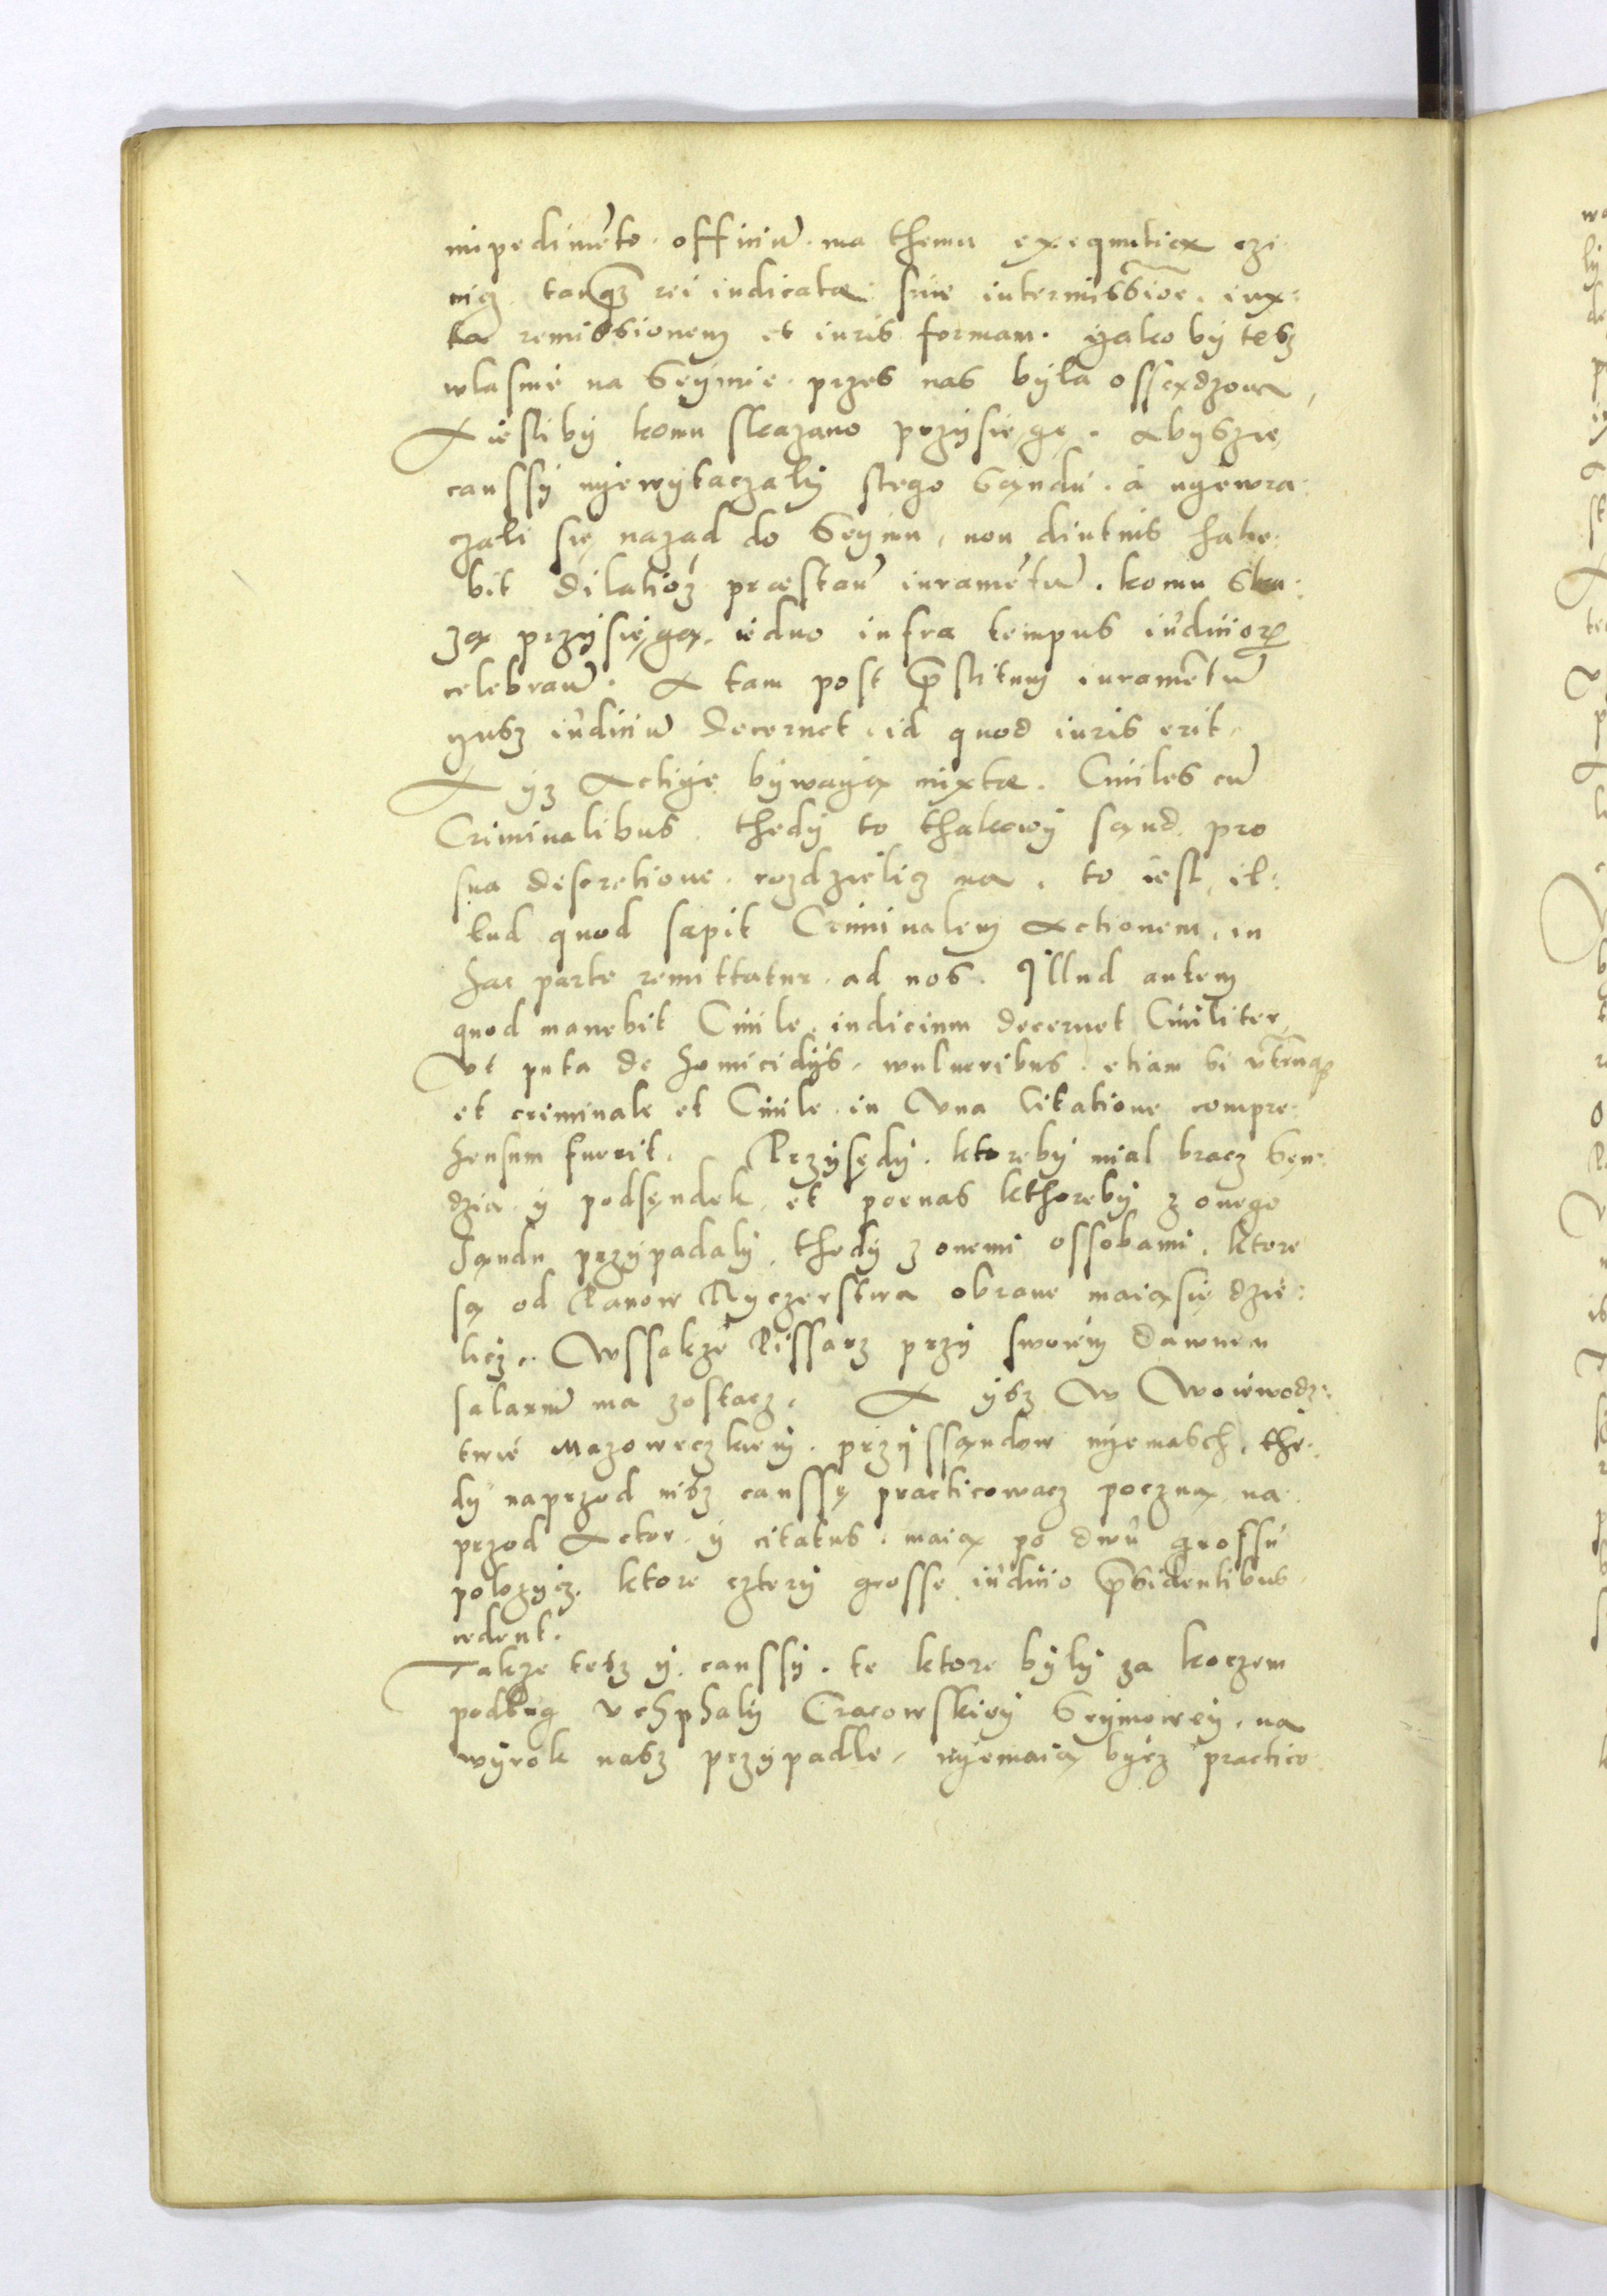 impedimẽto. officiũ. ma themu exequutią czi:
nicz tanq̃ rei iudicatæ: sine intermissiõe. iux:
ta remissionem et iuris formam. yakoby tesz
wlasnie na Seymie. przes nas była ossądzona,
A iesliby komu skazano przysięgę. Abyszie
caussy nyewytaczaly stego Sąndu. a nyewra:
czali się nazad do Seymu, non diutius habe:
bit dilatiõẽ præstañ iuramẽtũ. komu ska:
zą przysięgą. iedno infra tempus iudicioꝝ
celebrañ. A tam post p̃stitum iuramẽtũ
yusz iudiciũ decernet, id quod iuris erit.
A yz Actiye bywayą mixtæ. Ciuiles cũ
Criminalibus. thedy to thakowy sąnd. pro
sua discretione. rozdzielicz ma. to iest, il:
lud quod sapit Criminalem Actionem, in
hac parte remittatur. ad nos. Illud autem
quod manebit Ciuile, iudicium decernet Ciuiliter
Vt puta de homicidijs, wulneribus. etiam si vtrunq;
et criminale et Ciuile in Vna Citatione compre:
hensum fuerit. Przysędy. ktoreby mial bracz Sęn:
dzia y podsęndek, et poenas kthoreby z onego
Sąndu przypadaly, thedy z onemi ossobami. ktore
są od Panow Ryczerstwa obrane maią się dzie:
licz. Wssakze Pissarz przy swoiem dawnem
salariũ ma zostacz. A ysz W Woiewodz:
twie Mazoweczkiem. przyssąndow nyemasch, the:
dy naprzod nisz caussę practicowacz poczną, na
przod Actor y citatus. maią po dwu grossu
polozycz. ktore cztery grosse iudicio p̃sidentibus
cedent.
Takze tesz y. caussy. te ktore były za koczem
podług vchphaly Cracowskiey Seymowey, na
wyrok nasz przypadle, nyemaią bycz practico